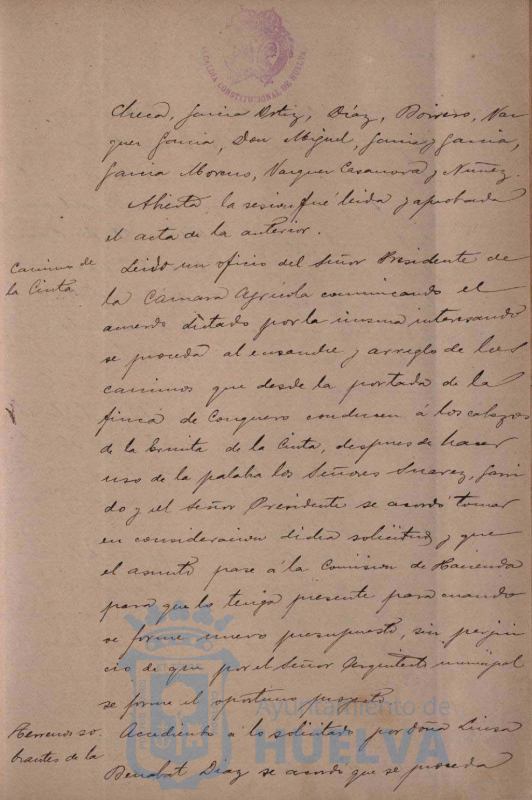 ALCALDIA CONSTITUCIONAL DE HUELVA
Checa, Garcia Ortiz, Díaz, Borrero, Vaz
quez Garcia, Don Miguel, Garcia y Garcia,
Garcia Moreno, Vazquez Casanova y Nuñez.
Abierta la sesion fué leida y aprobada
el acta de la anterior.
Caminos de
la Cinta.
Leido un oficio del Señor Presidente de
la Cámara Agrícola comunicando el
acuerdo dictado por la misma interesando
se proceda al ensanche y arreglo de los
caminos que desde la portada de la
finca de Conquero conducen á los cabezos
de la Ermita de la Cinta, despues de hacer
uso de la palaba los Señores Suarez, Garri
do y el Señor Presidente se acordó tomar
en consideracion dicha solicitud y que
el asunto pase á la Comision de Hacienda
para que lo tenga presente para cuando
se forme nuevo presupuesto, sin perjui
cio de que por el Señor Arquitecto municipal
se forme el oportuno proyecto.
Terrenos so-
brantes de la
Accediendo á lo solicitado por doña Luisa
Benabat Diaz se acordó que se proceda
Ayuntamiento de
HUELVA